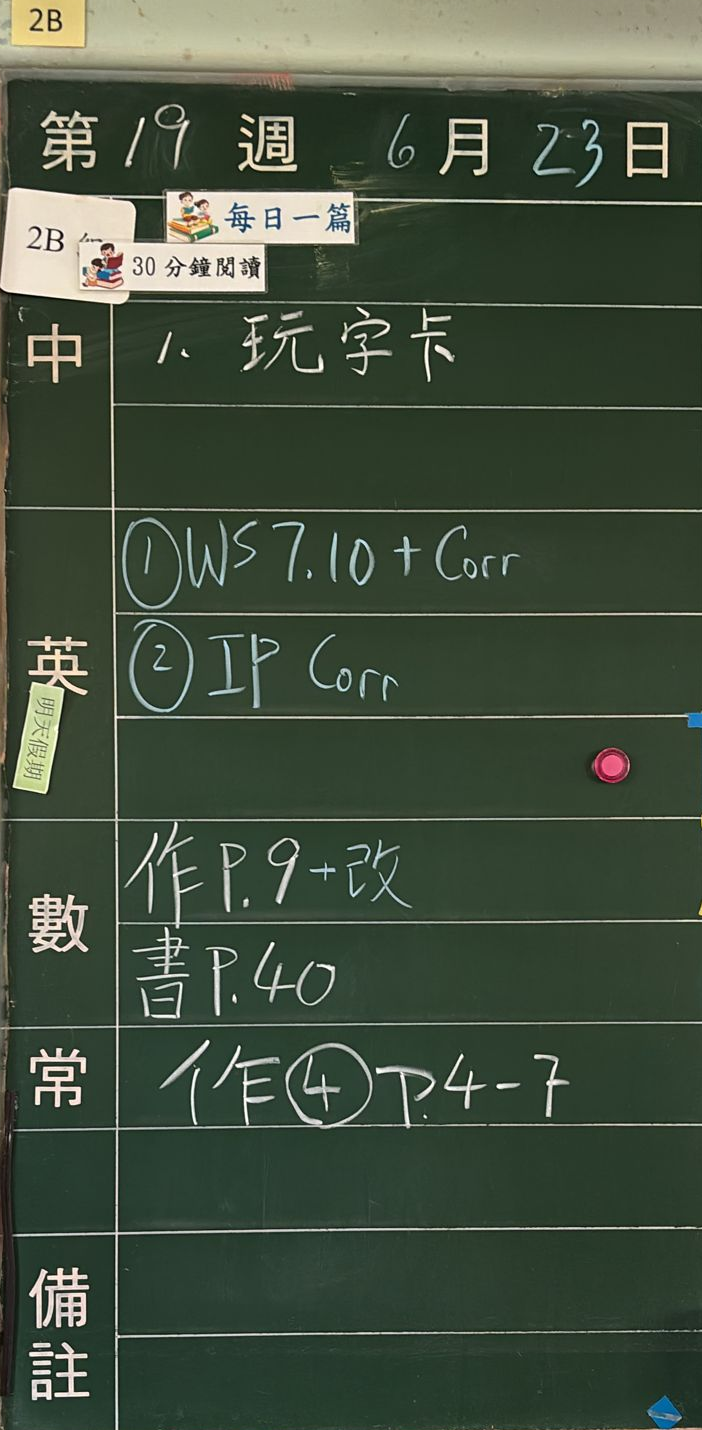 2B
第19週 6月23日
每日一篇
2B
30分鐘閱讀
中 1. 玩字卡
英 ①WS 7.10 + Corr
②IP Corr
明天假期
數 作P.9+改
書P.40
常 作④P.4-7
備註